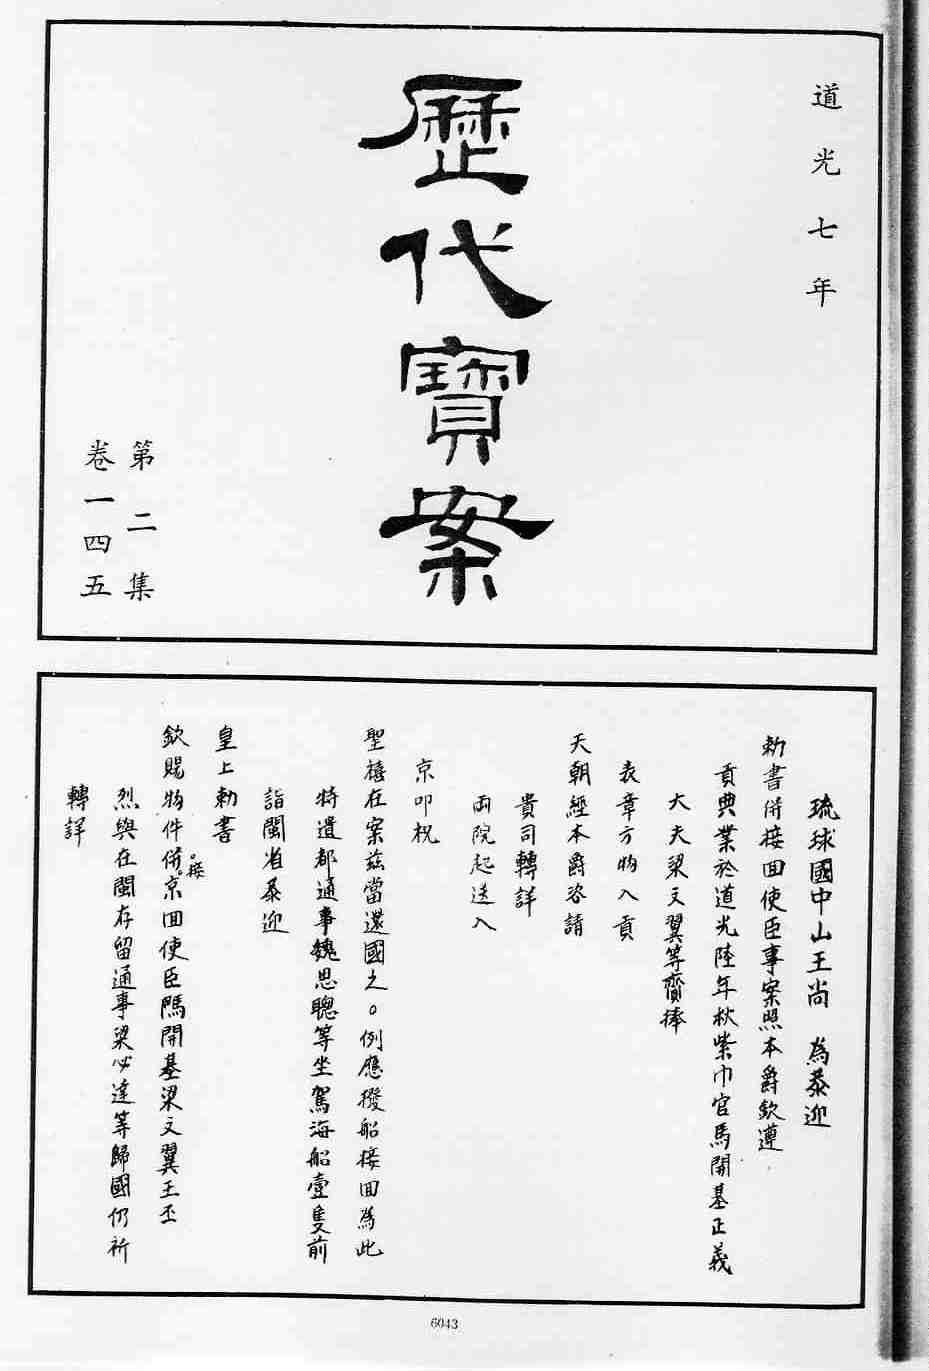 道光七年
歷代寶案
第二集
卷一四五
琉球國中山王尚　為恭迎
勅書併接回使臣事案照本爵欽遵
貢典業於道光陸年秋紫巾官馬開基正義
大夫梁文翼等齎捧
表章方物入貢
天朝經本爵咨請
貴司轉詳
両院起送入
京叩祝
聖禧在案茲當還國之。例應撥船接回為此
特遣都通事魏思聰等坐駕海船壹隻前
詣閩省恭迎
皇上勅書
欽賜物件併。接。京回使臣馬開基梁文翼王丕
烈與在閩存留通事梁必達等歸國仍祈
轉詳
6043